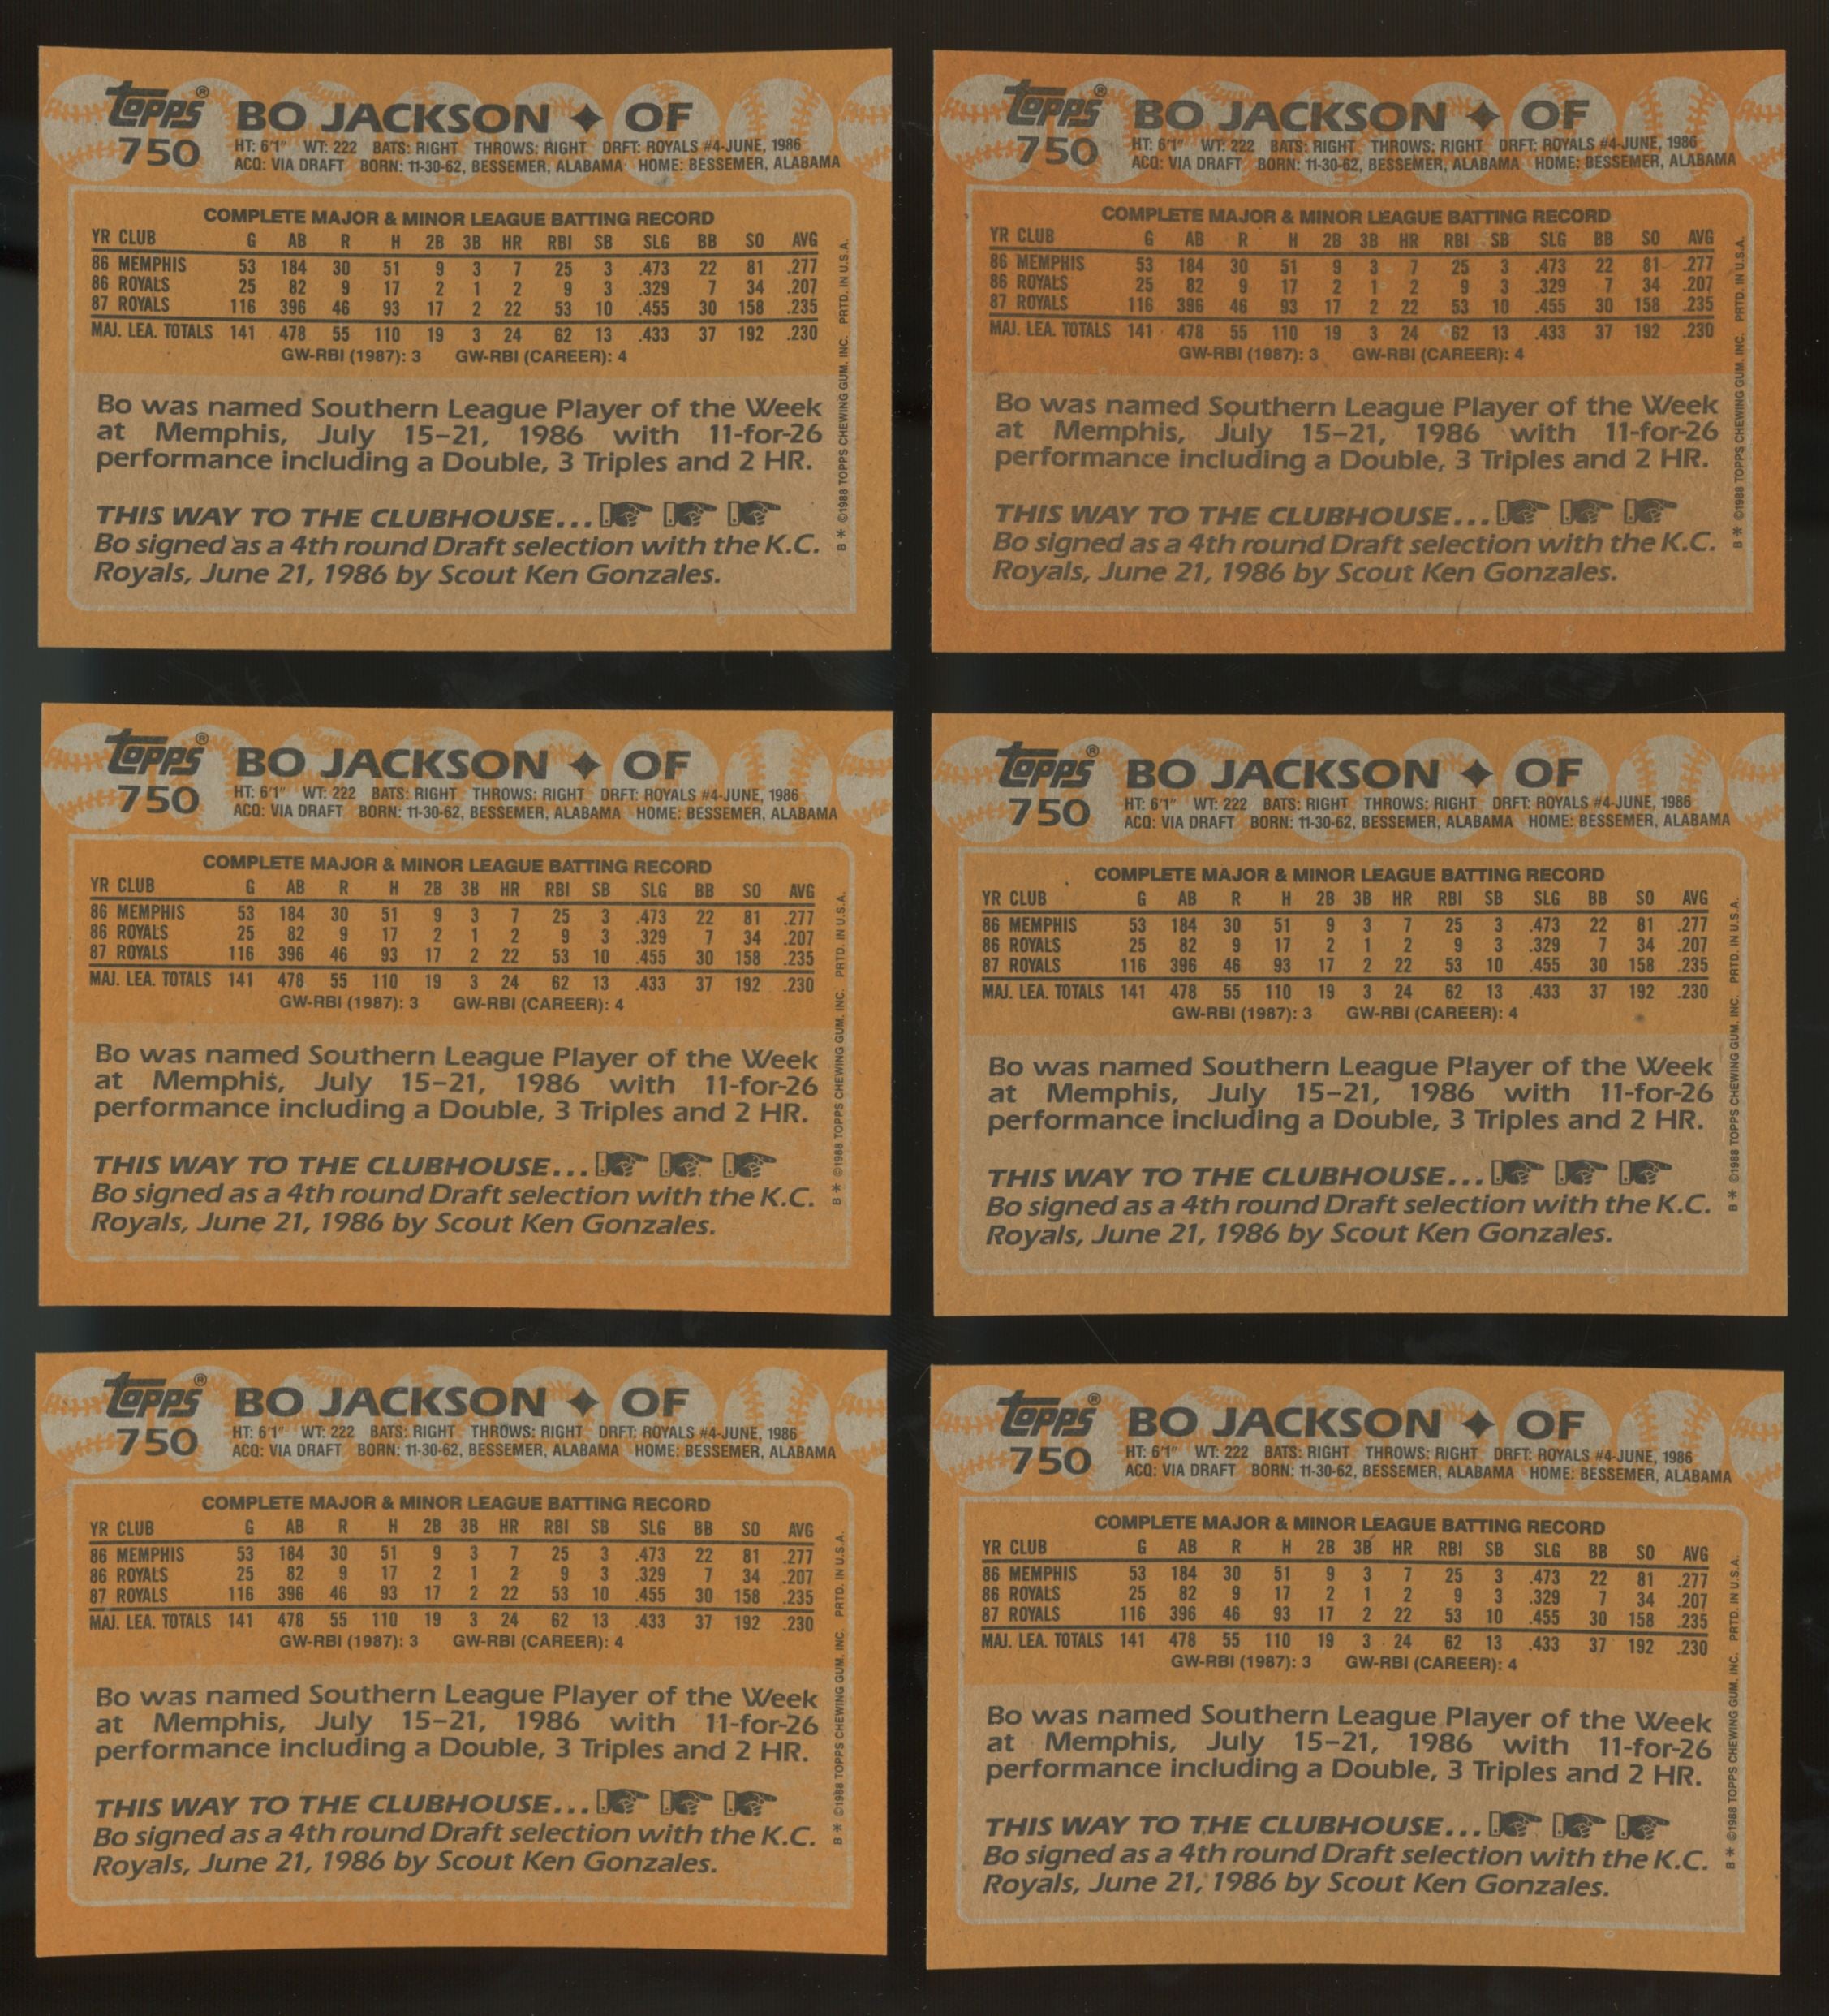 topps® BO JACKSON ✦ OF
750 HT: 6'1" WT: 222 BATS: RIGHT THROWS: RIGHT DRFT: ROYALS #4-JUNE, 1986
ACQ: VIA DRAFT BORN: 11-30-62, BESSEMER, ALABAMA HOME: BESSEMER, ALABAMA
COMPLETE MAJOR & MINOR LEAGUE BATTING RECORD
YR CLUB G AB R H 2B 3B HR RBI SB SLG BB SO AVG
86 MEMPHIS 53 184 30 51 9 3 7 25 3 .473 22 81 .277
86 ROYALS 25 82 9 17 2 1 2 9 3 .329 7 34 .207
87 ROYALS 116 396 46 93 17 2 22 53 10 .455 30 158 .235
MAJ. LEA. TOTALS 141 478 55 110 19 3 24 62 13 .433 37 192 .230
GW-RBI (1987): 3 GW-RBI (CAREER): 4
Bo was named Southern League Player of the Week
at Memphis, July 15–21, 1986 with 11-for-26
performance including a Double, 3 Triples and 2 HR.
THIS WAY TO THE CLUBHOUSE...
Bo signed as a 4th round Draft selection with the K.C.
Royals, June 21, 1986 by Scout Ken Gonzales.
B * ©1988 TOPPS CHEWING GUM, INC. PRTD. IN U.S.A.
topps® BO JACKSON ✦ OF
750 HT: 6'1" WT: 222 BATS: RIGHT THROWS: RIGHT DRFT: ROYALS #4-JUNE, 1986
ACQ: VIA DRAFT BORN: 11-30-62, BESSEMER, ALABAMA HOME: BESSEMER, ALABAMA
COMPLETE MAJOR & MINOR LEAGUE BATTING RECORD
YR CLUB G AB R H 2B 3B HR RBI SB SLG BB SO AVG
86 MEMPHIS 53 184 30 51 9 3 7 25 3 .473 22 81 .277
86 ROYALS 25 82 9 17 2 1 2 9 3 .329 7 34 .207
87 ROYALS 116 396 46 93 17 2 22 53 10 .455 30 158 .235
MAJ. LEA. TOTALS 141 478 55 110 19 3 24 62 13 .433 37 192 .230
GW-RBI (1987): 3 GW-RBI (CAREER): 4
Bo was named Southern League Player of the Week
at Memphis, July 15–21, 1986 with 11-for-26
performance including a Double, 3 Triples and 2 HR.
THIS WAY TO THE CLUBHOUSE...
Bo signed as a 4th round Draft selection with the K.C.
Royals, June 21, 1986 by Scout Ken Gonzales.
B * ©1988 TOPPS CHEWING GUM, INC. PRTD. IN U.S.A.
topps® BO JACKSON ✦ OF
750 HT: 6'1" WT: 222 BATS: RIGHT THROWS: RIGHT DRFT: ROYALS #4-JUNE, 1986
ACQ: VIA DRAFT BORN: 11-30-62, BESSEMER, ALABAMA HOME: BESSEMER, ALABAMA
COMPLETE MAJOR & MINOR LEAGUE BATTING RECORD
YR CLUB G AB R H 2B 3B HR RBI SB SLG BB SO AVG
86 MEMPHIS 53 184 30 51 9 3 7 25 3 .473 22 81 .277
86 ROYALS 25 82 9 17 2 1 2 9 3 .329 7 34 .207
87 ROYALS 116 396 46 93 17 2 22 53 10 .455 30 158 .235
MAJ. LEA. TOTALS 141 478 55 110 19 3 24 62 13 .433 37 192 .230
GW-RBI (1987): 3 GW-RBI (CAREER): 4
Bo was named Southern League Player of the Week
at Memphis, July 15–21, 1986 with 11-for-26
performance including a Double, 3 Triples and 2 HR.
THIS WAY TO THE CLUBHOUSE...
Bo signed as a 4th round Draft selection with the K.C.
Royals, June 21, 1986 by Scout Ken Gonzales.
B * ©1988 TOPPS CHEWING GUM, INC. PRTD. IN U.S.A.
topps® BO JACKSON ✦ OF
750 HT: 6'1" WT: 222 BATS: RIGHT THROWS: RIGHT DRFT: ROYALS #4-JUNE, 1986
ACQ: VIA DRAFT BORN: 11-30-62, BESSEMER, ALABAMA HOME: BESSEMER, ALABAMA
COMPLETE MAJOR & MINOR LEAGUE BATTING RECORD
YR CLUB G AB R H 2B 3B HR RBI SB SLG BB SO AVG
86 MEMPHIS 53 184 30 51 9 3 7 25 3 .473 22 81 .277
86 ROYALS 25 82 9 17 2 1 2 9 3 .329 7 34 .207
87 ROYALS 116 396 46 93 17 2 22 53 10 .455 30 158 .235
MAJ. LEA. TOTALS 141 478 55 110 19 3 24 62 13 .433 37 192 .230
GW-RBI (1987): 3 GW-RBI (CAREER): 4
Bo was named Southern League Player of the Week
at Memphis, July 15–21, 1986 with 11-for-26
performance including a Double, 3 Triples and 2 HR.
THIS WAY TO THE CLUBHOUSE...
Bo signed as a 4th round Draft selection with the K.C.
Royals, June 21, 1986 by Scout Ken Gonzales.
B * ©1988 TOPPS CHEWING GUM, INC. PRTD. IN U.S.A.
topps® BO JACKSON ✦ OF
750 HT: 6'1" WT: 222 BATS: RIGHT THROWS: RIGHT DRFT: ROYALS #4-JUNE, 1986
ACQ: VIA DRAFT BORN: 11-30-62, BESSEMER, ALABAMA HOME: BESSEMER, ALABAMA
COMPLETE MAJOR & MINOR LEAGUE BATTING RECORD
YR CLUB G AB R H 2B 3B HR RBI SB SLG BB SO AVG
86 MEMPHIS 53 184 30 51 9 3 7 25 3 .473 22 81 .277
86 ROYALS 25 82 9 17 2 1 2 9 3 .329 7 34 .207
87 ROYALS 116 396 46 93 17 2 22 53 10 .455 30 158 .235
MAJ. LEA. TOTALS 141 478 55 110 19 3 24 62 13 .433 37 192 .230
GW-RBI (1987): 3 GW-RBI (CAREER): 4
Bo was named Southern League Player of the Week
at Memphis, July 15–21, 1986 with 11-for-26
performance including a Double, 3 Triples and 2 HR.
THIS WAY TO THE CLUBHOUSE...
Bo signed as a 4th round Draft selection with the K.C.
Royals, June 21, 1986 by Scout Ken Gonzales.
B * ©1988 TOPPS CHEWING GUM, INC. PRTD. IN U.S.A.
topps® BO JACKSON ✦ OF
750 HT: 6'1" WT: 222 BATS: RIGHT THROWS: RIGHT DRFT: ROYALS #4-JUNE, 1986
ACQ: VIA DRAFT BORN: 11-30-62, BESSEMER, ALABAMA HOME: BESSEMER, ALABAMA
COMPLETE MAJOR & MINOR LEAGUE BATTING RECORD
YR CLUB G AB R H 2B 3B HR RBI SB SLG BB SO AVG
86 MEMPHIS 53 184 30 51 9 3 7 25 3 .473 22 81 .277
86 ROYALS 25 82 9 17 2 1 2 9 3 .329 7 34 .207
87 ROYALS 116 396 46 93 17 2 22 53 10 .455 30 158 .235
MAJ. LEA. TOTALS 141 478 55 110 19 3 24 62 13 .433 37 192 .230
GW-RBI (1987): 3 GW-RBI (CAREER): 4
Bo was named Southern League Player of the Week
at Memphis, July 15–21, 1986 with 11-for-26
performance including a Double, 3 Triples and 2 HR.
THIS WAY TO THE CLUBHOUSE...
Bo signed as a 4th round Draft selection with the K.C.
Royals, June 21, 1986 by Scout Ken Gonzales.
B * ©1988 TOPPS CHEWING GUM, INC. PRTD. IN U.S.A.